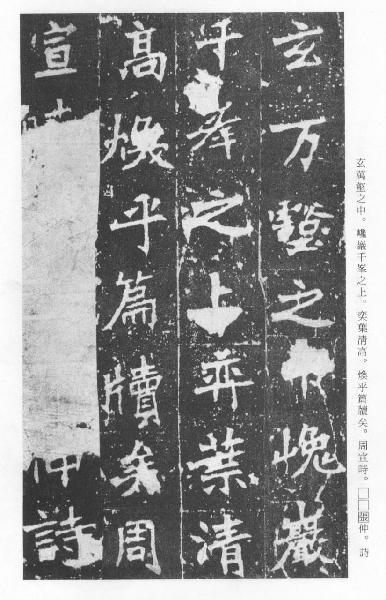 玄萬壑之中。巉巖千峯之上。奕葉清高。煥乎篇牘矣。周宣時。□□張仲。詩
玄万壑之中巉巖
千峯之上弈葉清
高煥乎篇牘矣周
宣時仲詩